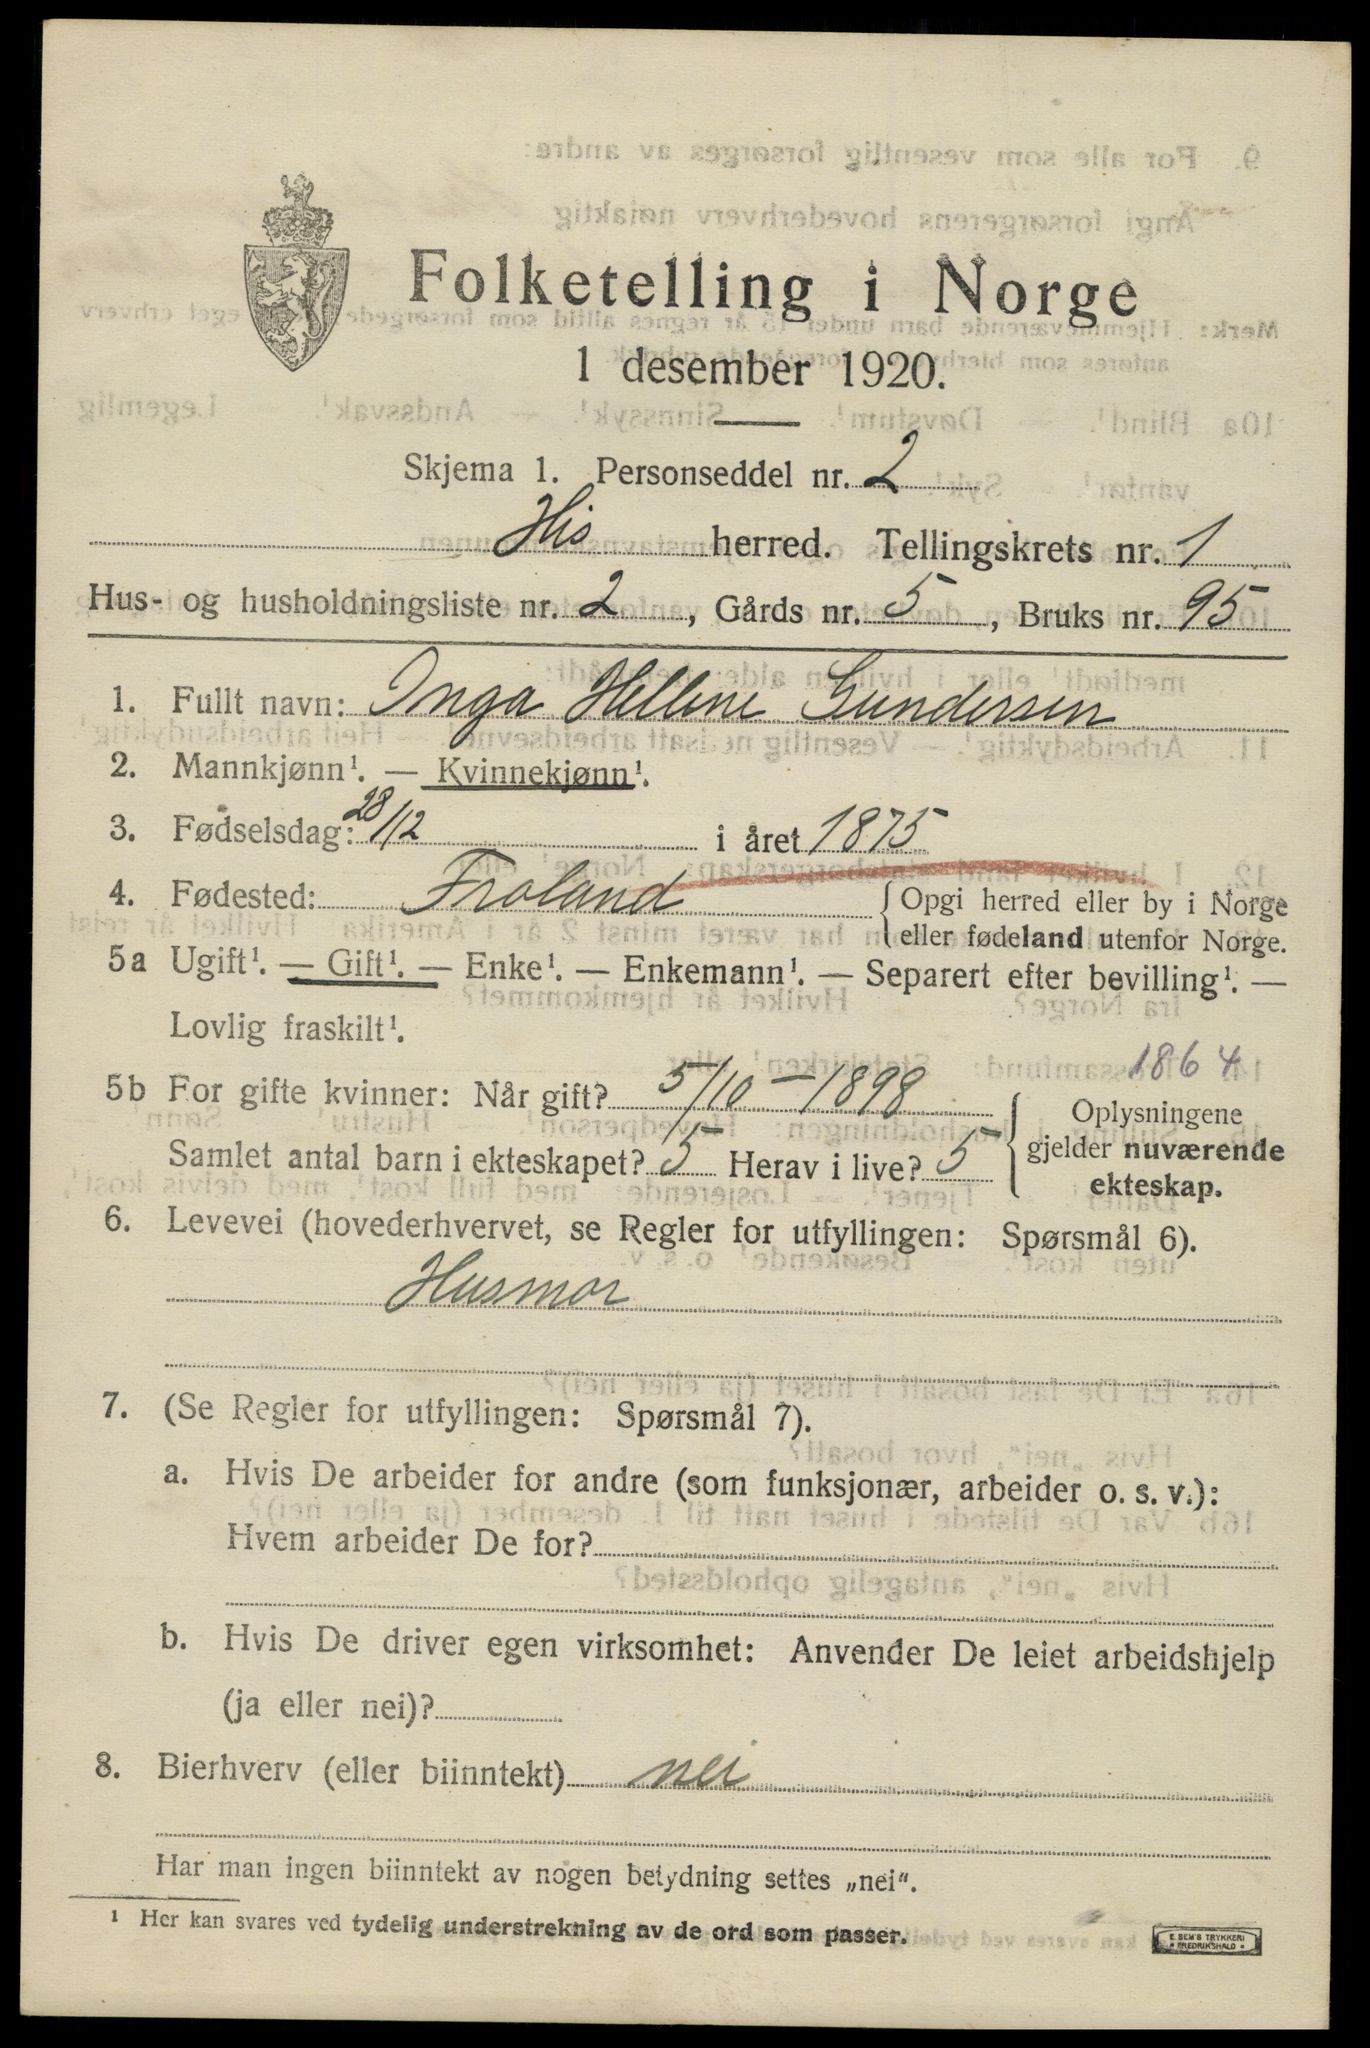 Folketelling i Norge
1 desember 1920.
Skjema 1. Personseddel nr. 2
His herred. Tellingskrets nr. 1
Hus- og husholdningsliste nr. 2, Gårds nr. 5, Bruks nr. 95
1. Fullt navn: Inga Hellene Gundersen
2. Mannkjønn¹. — Kvinnekjønn¹.
3. Fødselsdag: 28/12 i året 1875
4. Fødested: Froland { Opgi herred eller by i Norge
eller fødeland utenfor Norge.
5a Ugift¹. — Gift¹. — Enke¹. — Enkemann¹. — Separert efter bevilling¹. —
Lovlig fraskilt¹.
1864
5b For gifte kvinner: Når gift? 5/10-1898 { Oplysningene
Samlet antal barn i ekteskapet? 5 Herav i live? 5 gjelder nuværende
ekteskap.
6. Levevei (hovederhvervet, se Regler for utfyllingen: Spørsmål 6).
Husmor
7. (Se Regler for utfyllingen: Spørsmål 7).
a. Hvis De arbeider for andre (som funksjonær, arbeider o. s. v.):
Hvem arbeider De for?
b. Hvis De driver egen virksomhet: Anvender De leiet arbeidshjelp
(ja eller nei)?
8. Bierhverv (eller biinntekt) nei
Har man ingen biinntekt av nogen betydning settes „nei“.
¹ Her kan svares ved tydelig understrekning av de ord som passer.
E. SEM'S TRYKKERI
FREDRIKSHALD